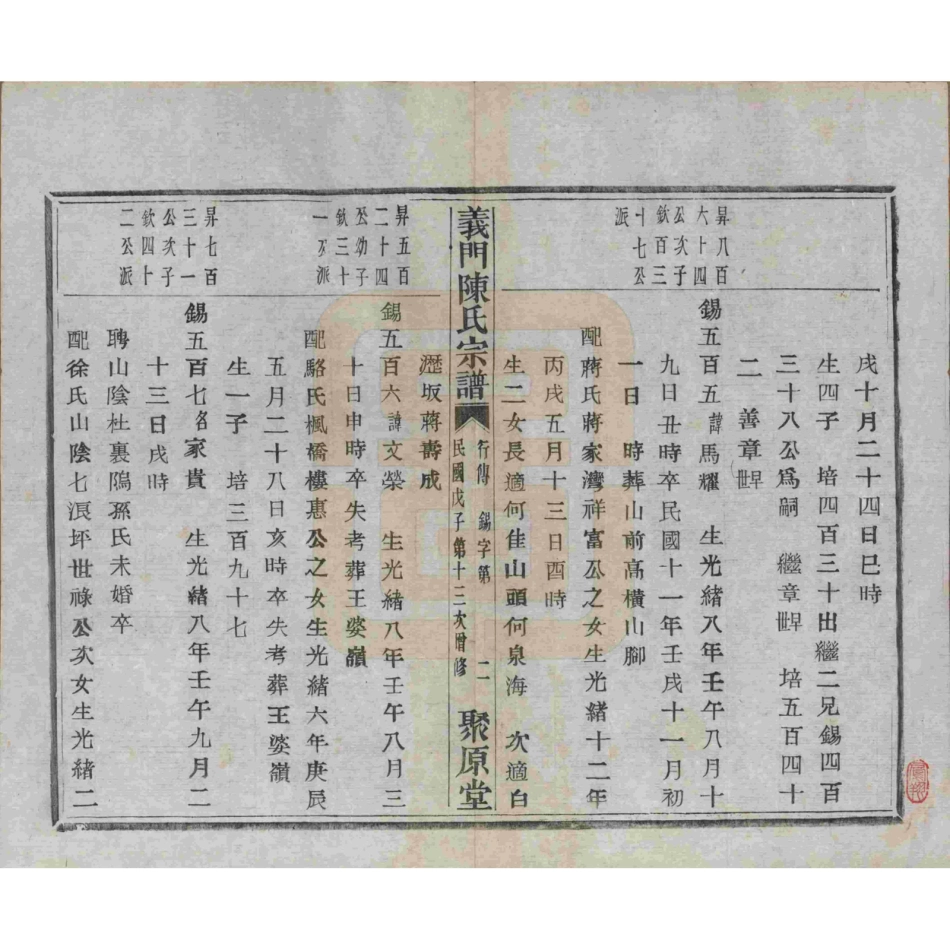 戌十月二十四日巳時
生四子　培四百三十出繼二兄錫四百
三十八公爲嗣　繼章䍐　培五百四十
二　善章䍐
昇八百
六十四
公次子
欽百三
十七公
派
錫五百五諱馬耀　生光緒八年壬午八月十
九日丑時卒民國十一年壬戌十一月初
一日　時葬山前高橫山腳
配蔣氏蔣家灣祥富公之女生光緒十二年
丙戌五月十三日酉時
生二女長適何佳山頭何泉海　次適白
義門陳氏宗譜
行傳　錫字第　二
民國戊子第十三次增修
聚原堂
瀝坂蔣壽成
昇五百
二十四
公幼子
欽三十
一公派
錫五百六諱文榮　生光緒八年壬午八月三
十日申時卒失考葬王婆嶺
配駱氏楓橋樓惠公之女生光緒六年庚辰
五月二十八日亥時卒失考葬王婆嶺
生一子　培三百九十七
昇七百
三十一
公次子
欽四十
二公派
錫五百七名家貴　生光緒八年壬午九月二
十三日戌時
聘山陰杜裏隖孫氏未婚卒
配徐氏山陰七浿坪世祿公次女生光緒二